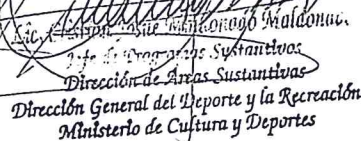 Lic.
Jefe de Programas Sustantivos
Dirección de Áreas Sustantivas
Dirección General del Deporte y la Recreación
Ministerio de Cultura y Deportes